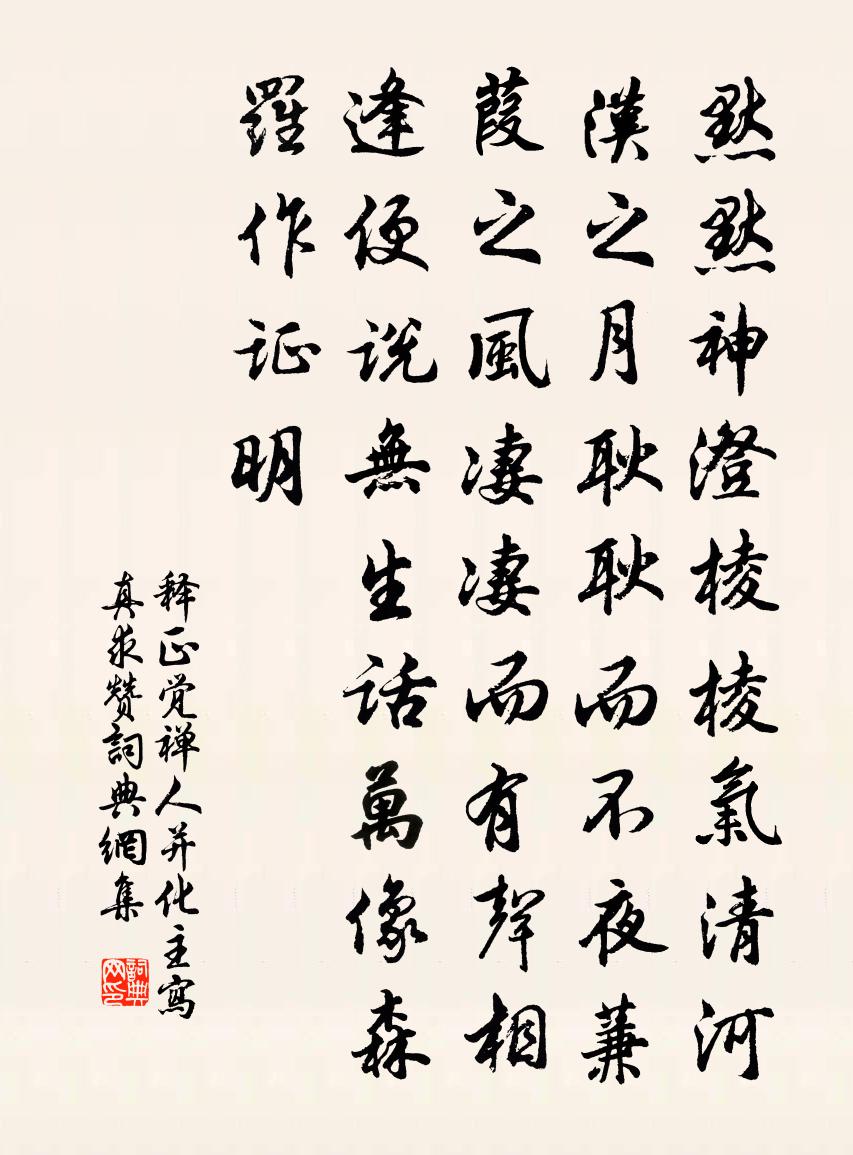 默默神澄棱棱氣清河
漢之月耿耿而不夜蒹
葭之風凄凄而有聲相
逢便説無生話萬像森
羅作证明
释正觉禅人并化主寫
真求赞詞典網集
詞典
网印